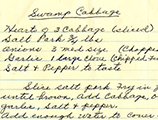 Swamp Cabbage
Hearts of 3 Cabbage (sliced)
Salt Pork 1/2 lbs
Onions 3 med size (Chopped
Garlic 1 large clove (Chipped fine
Salt & Pepper to taste
Slice salt Pork fry in
until brown, add Cabbage,
garlic, salt & pepper.
Add enough water to cover